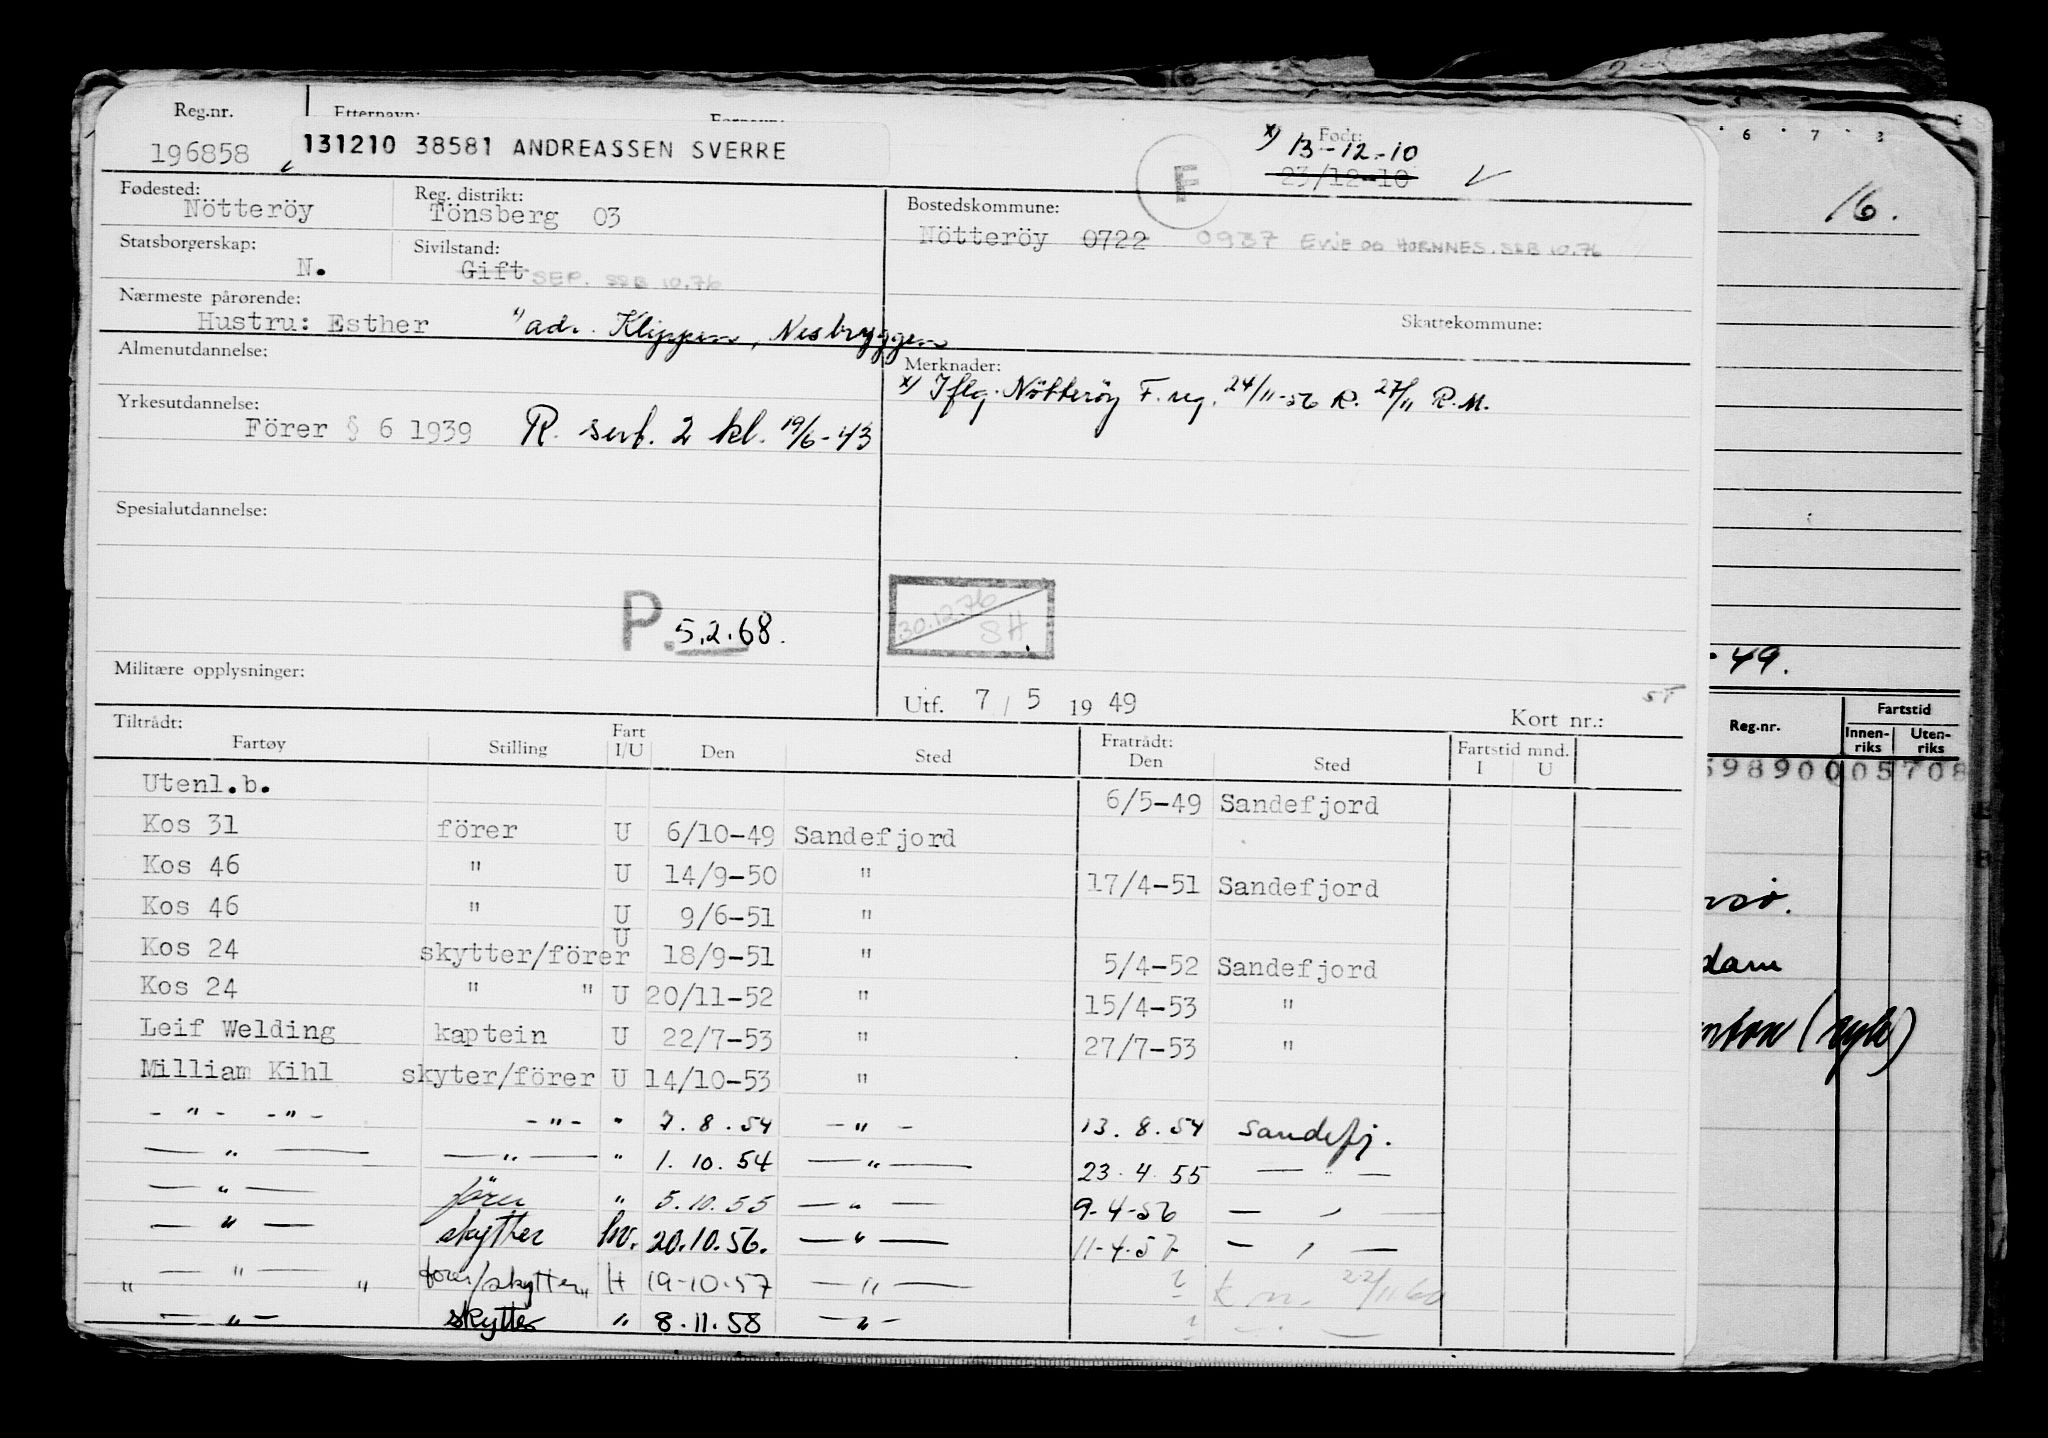 Reg.nr. Etternavn: Fornavn: Født:
196858 131210 38581 ANDREASSEN SVERRE F x) 13-12-10
23/12-10
Fødested: Nötteröy Reg. distrikt: Tönsberg 03 Bostedskommune:
Nötteröy 0722 0937 EVJE OG HORNNES. SSB 10.76
Statsborgerskap: N. Sivilstand: Gift SEP. SSB 10.76
Nærmeste pårørende:
Hustru: Esther ") adr. Klippen, Nesbryggen Skattekommune:
Almenutdannelse: Merknader:
x) Iflg. Nötteröy F. reg. 24/11-56 R. 27/11 R.M.
Yrkesutdannelse:
Förer § 6 1939 R. serf. 2 kl. 19/6-43
Spesialutdannelse:
P. 5.2.68. 30.12.76 SH
Militære opplysninger:
Utf. 7 / 5 19 49 Kort nr.: ST
Tiltrådt: Fratrådt:
Fartøy Stilling Fart I/U Den Sted Den Sted Fartstid mnd. I U
Utenl.b. 6/5-49 Sandefjord
Kos 31 förer U 6/10-49 Sandefjord
Kos 46 " U 14/9-50 " 17/4-51 Sandefjord
Kos 46 " U 9/6-51 "
Kos 24 skytter/förer U 18/9-51 " 5/4-52 Sandefjord
Kos 24 " " U 20/11-52 " 15/4-53 "
Leif Welding kaptein U 22/7-53 " 27/7-53 "
Milliam Kihl skyter/förer U 14/10-53 "
- " - - " - - " - " 7.8.54 - " - 13.8.54 Sandefj.
— " — — " — " 1.10.54 — " — 23.4.55 — " —
— " — förer " 5.10.55 — " — 9-4-56 — " —
— " — skytter hv. 20.10.56. — " — 11-4-57 — " —
" — " — " förer/skytter H 19-10-57 — " — ? k m. 22/11 60
— " — skytter " 8.11.58 — " — ? — " —
6 7 8
16.
- 49.
Reg.nr. Fartstid
Innenriks Utenriks
598900 05708
dam
(syk)